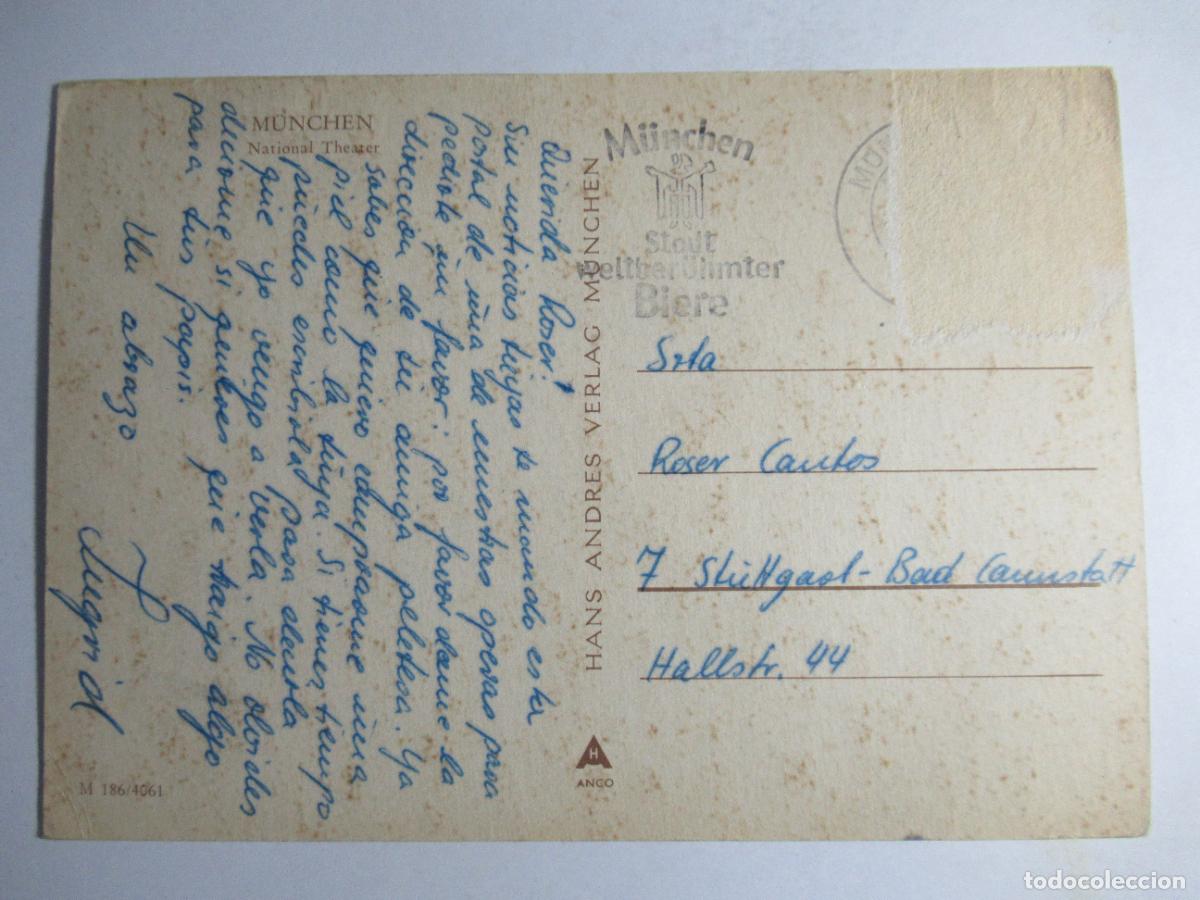 MÜNCHEN
National Theater
Querida Roser:
Sin noticias tuyas te mando esta
postal de una de nuestras operas para
pedirte un favor: por favor dame la
direccion de tu amiga peletera. Ya
sabes que quiero comprarme una
piel como la tuya. Si tienes tiempo
puedes escribirla para
que yo vengo a verla. No olvides
decirme si quieres que traigo algo
para tus papis.
Un abrazo
Ingrid
M 186/4061
HANS ANDRES VERLAG MÜNCHEN
ANCO
München
Stadt
weltberühmter
Biere
MÜN
Srta
Roser Cantos
7 Stuttgart-Bad Cannstatt
Hallstr. 44
todocoleccion